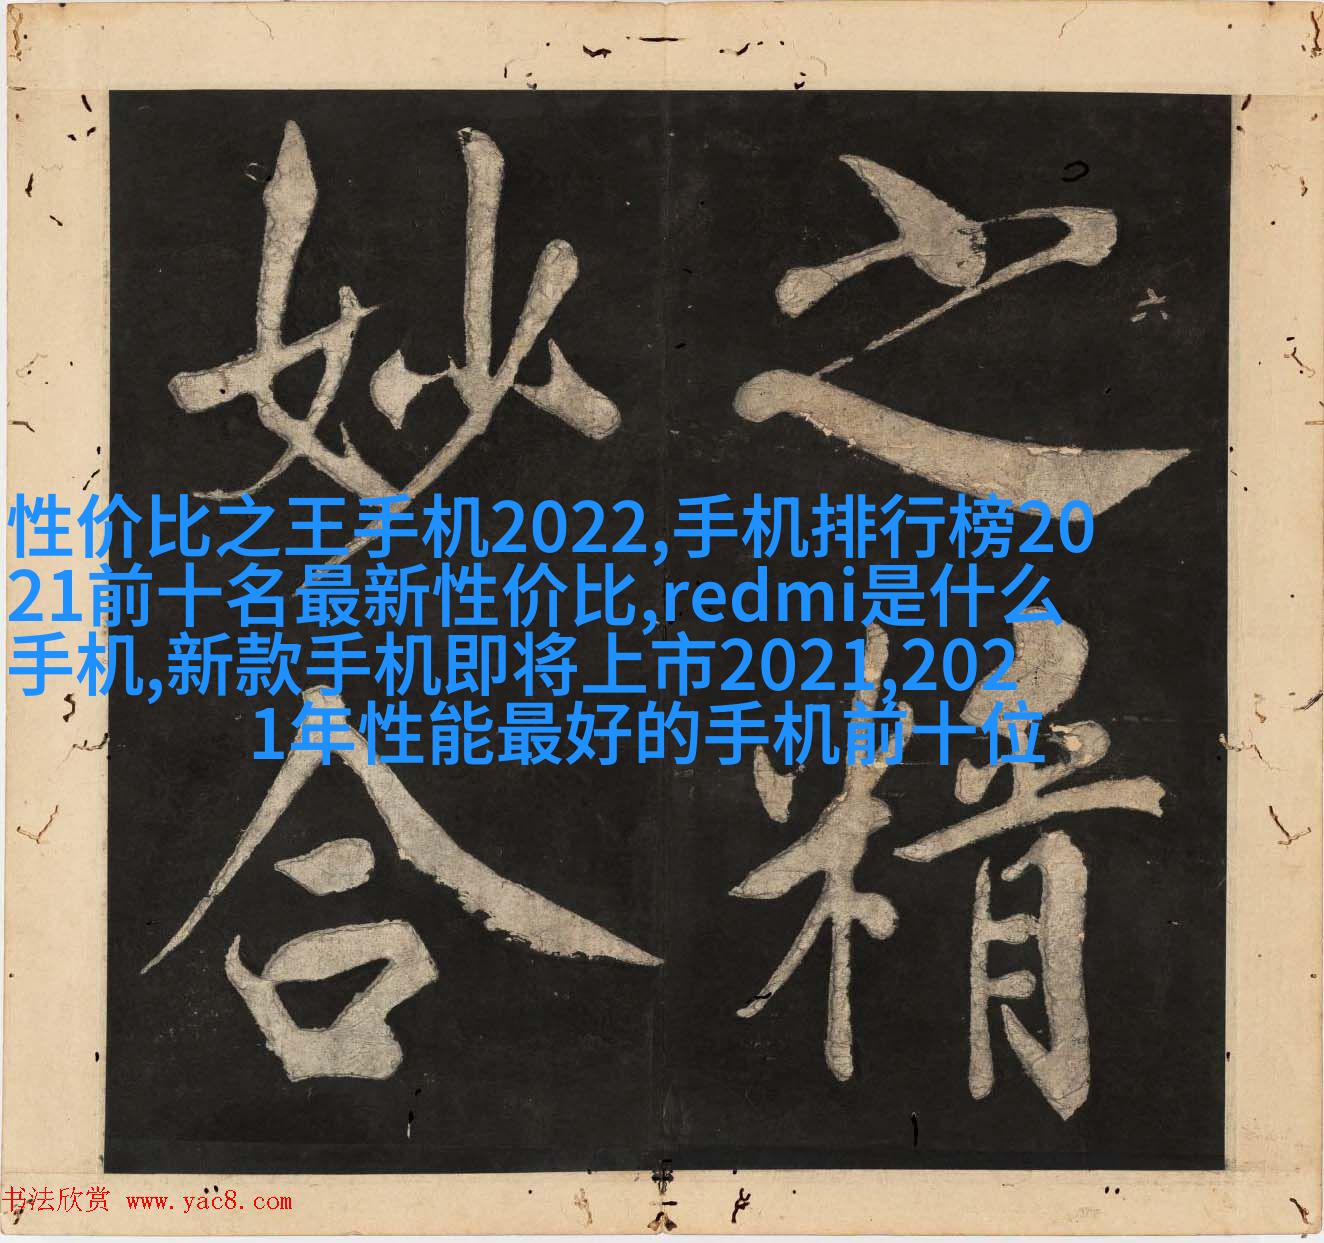 之精
妙合
六
性价比之王手机2022,手机排行榜20
21前十名最新性价比,redmi是什么
手机,新款手机即将上市2021,202
1年性能最好的手机前十位
书法欣赏 www.yac8.com